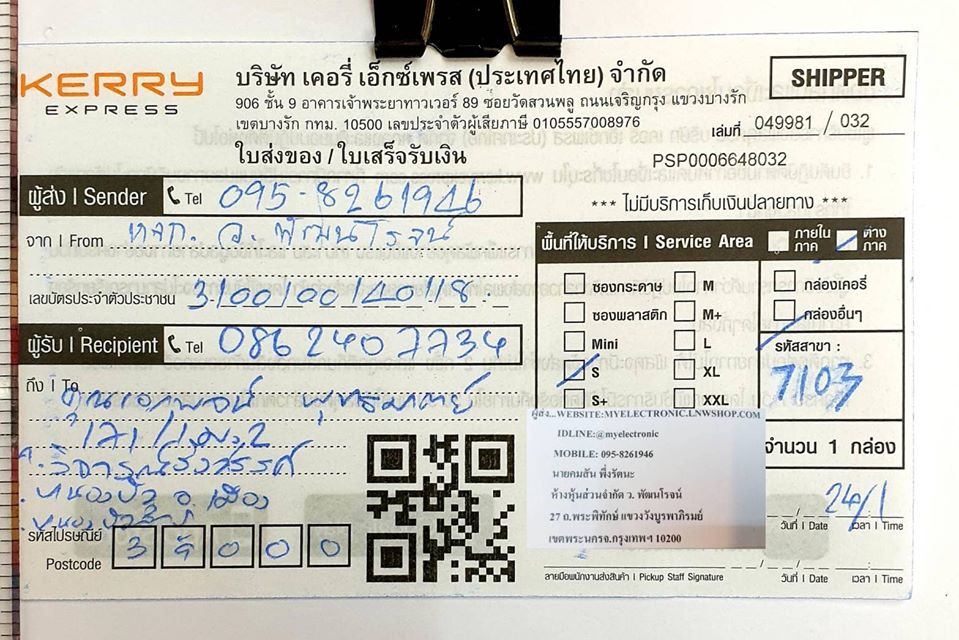 KERRY
EXPRESS
บริษัท เคอรี่ เอ็กซ์เพรส (ประเทศไทย) จำกัด
906 ชั้น 9 อาคารเจ้าพระยาทาวเวอร์ 89 ซอยวัดสวนพลู ถนนเจริญกรุง แขวงบางรัก
เขตบางรัก กทม. 10500 เลขประจำตัวผู้เสียภาษี 0105557008976
SHIPPER
เล่มที่ 049981 / 032
ใบส่งของ / ใบเสร็จรับเงิน
PSP0006648032
ผู้ส่ง | Sender Tel 095-8261946
*** ไม่มีบริการเก็บเงินปลายทาง ***
จาก | From หจก. ว. พัฒนโรจน์
พื้นที่ให้บริการ | Service Area ภายในภาค ต่างภาค
เลขบัตรประจำตัวประชาชน
ซองกระดาษ M กล่องเคอรี่
ซองพลาสติก M+ กล่องอื่นๆ
Mini L รหัสสาขา :
S XL 7103
S+ XXL
ผู้รับ | Recipient Tel 0862407734
ถึง | To
171/1 ม.2
หนองบัว อ.เมือง
รหัสไปรษณีย์
Postcode
000
ผู้ส่ง...WEBSITE:MYELECTRONIC.LNWSHOP.COM
IDLINE:@myelectronic
MOBILE: 095-8261946
นายคมสัน พึ่งรัตนะ
ห้างหุ้นส่วนจำกัด ว. พัฒนโรจน์
27 ถ.พระพิทักษ์ แขวงวังบูรพาภิรมย์
เขตพระนครจ.กรุงเทพฯ 10200
จำนวน 1 กล่อง
24/1
วันที่ | Date เวลา | Time
ลายมือพนักงานส่งสินค้า | Pickup Staff Signature วันที่ | Date เวลา | Time